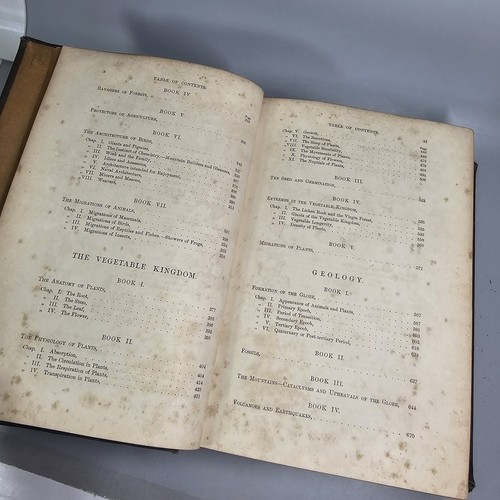 TABLE OF CONTENTS.
BOOK IV.
RAVAGERS OF FORESTS,
BOOK V.
PROTECTORS OF AGRICULTURE,
BOOK VI.
THE ARCHITECTURE OF BIRDS,
Chap. I. Giants and Pigmies,
" II. The Instinct of Chauncery,—Mountain Builders and Gleaners,
" III. Work and the Family,
" IV. Idlers and Assassins,
" V. Architecture intended for Enjoyment,
" VI. Naval Architecture,
" VII. Miners and Masons,
" VIII. Weavers,
BOOK VII.
THE MIGRATIONS OF ANIMALS,
Chap. I. Migrations of Mammals,
" II. Migrations of Birds,
" III. Migrations of Reptiles and Fishes—Showers of Frogs,
" IV. Migrations of Insects,
THE VEGETABLE KINGDOM.
BOOK I.
THE ANATOMY OF PLANTS, 377
Chap. I. The Root,
" II. The Stem,
" III. The Leaf,
" IV. The Flower,
BOOK II.
THE PHYSIOLOGY OF PLANTS, 404
Chap. I. Absorption, 404
" II. The Circulation in Plants, 414
" III. The Respiration of Plants,
" IV. Transpiration in Plants, 431
TABLE OF CONTENTS.
Chap. V. Growth,
" VI. The Secretions,
" VII. The Sleep of Plants,
" VIII. Vegetable Sensibility,
" IX. The Movements of Plants,
" X. Physiology of Flowers,
" XI. The Nuptials of Plants,
BOOK III.
THE SEED AND GERMINATION,
BOOK IV.
EXTREMES IN THE VEGETABLE KINGDOM,
Chap. I. The Lichen Rock and the Virgin Forest,
" II. Giants of the Vegetable Kingdom,
" III. Vegetable Longevity,
" IV. Density of Plants,
BOOK V.
MIGRATIONS OF PLANTS, 571
GEOLOGY.
BOOK I.
FORMATION OF THE GLOBE,
Chap. I. Appearance of Animals and Plants, 587
" II. Primary Epoch,
" III. Period of Transition,
" IV. Secondary Epoch,
" V. Tertiary Epoch,
" VI. Quaternary or Post-tertiary Period,
BOOK II.
FOSSILS, 627
BOOK III.
THE MOUNTAINS—CATACLYSMS AND UPHEAVALS OF THE GLOBE, 644
BOOK IV.
VOLCANOES AND EARTHQUAKES, 670